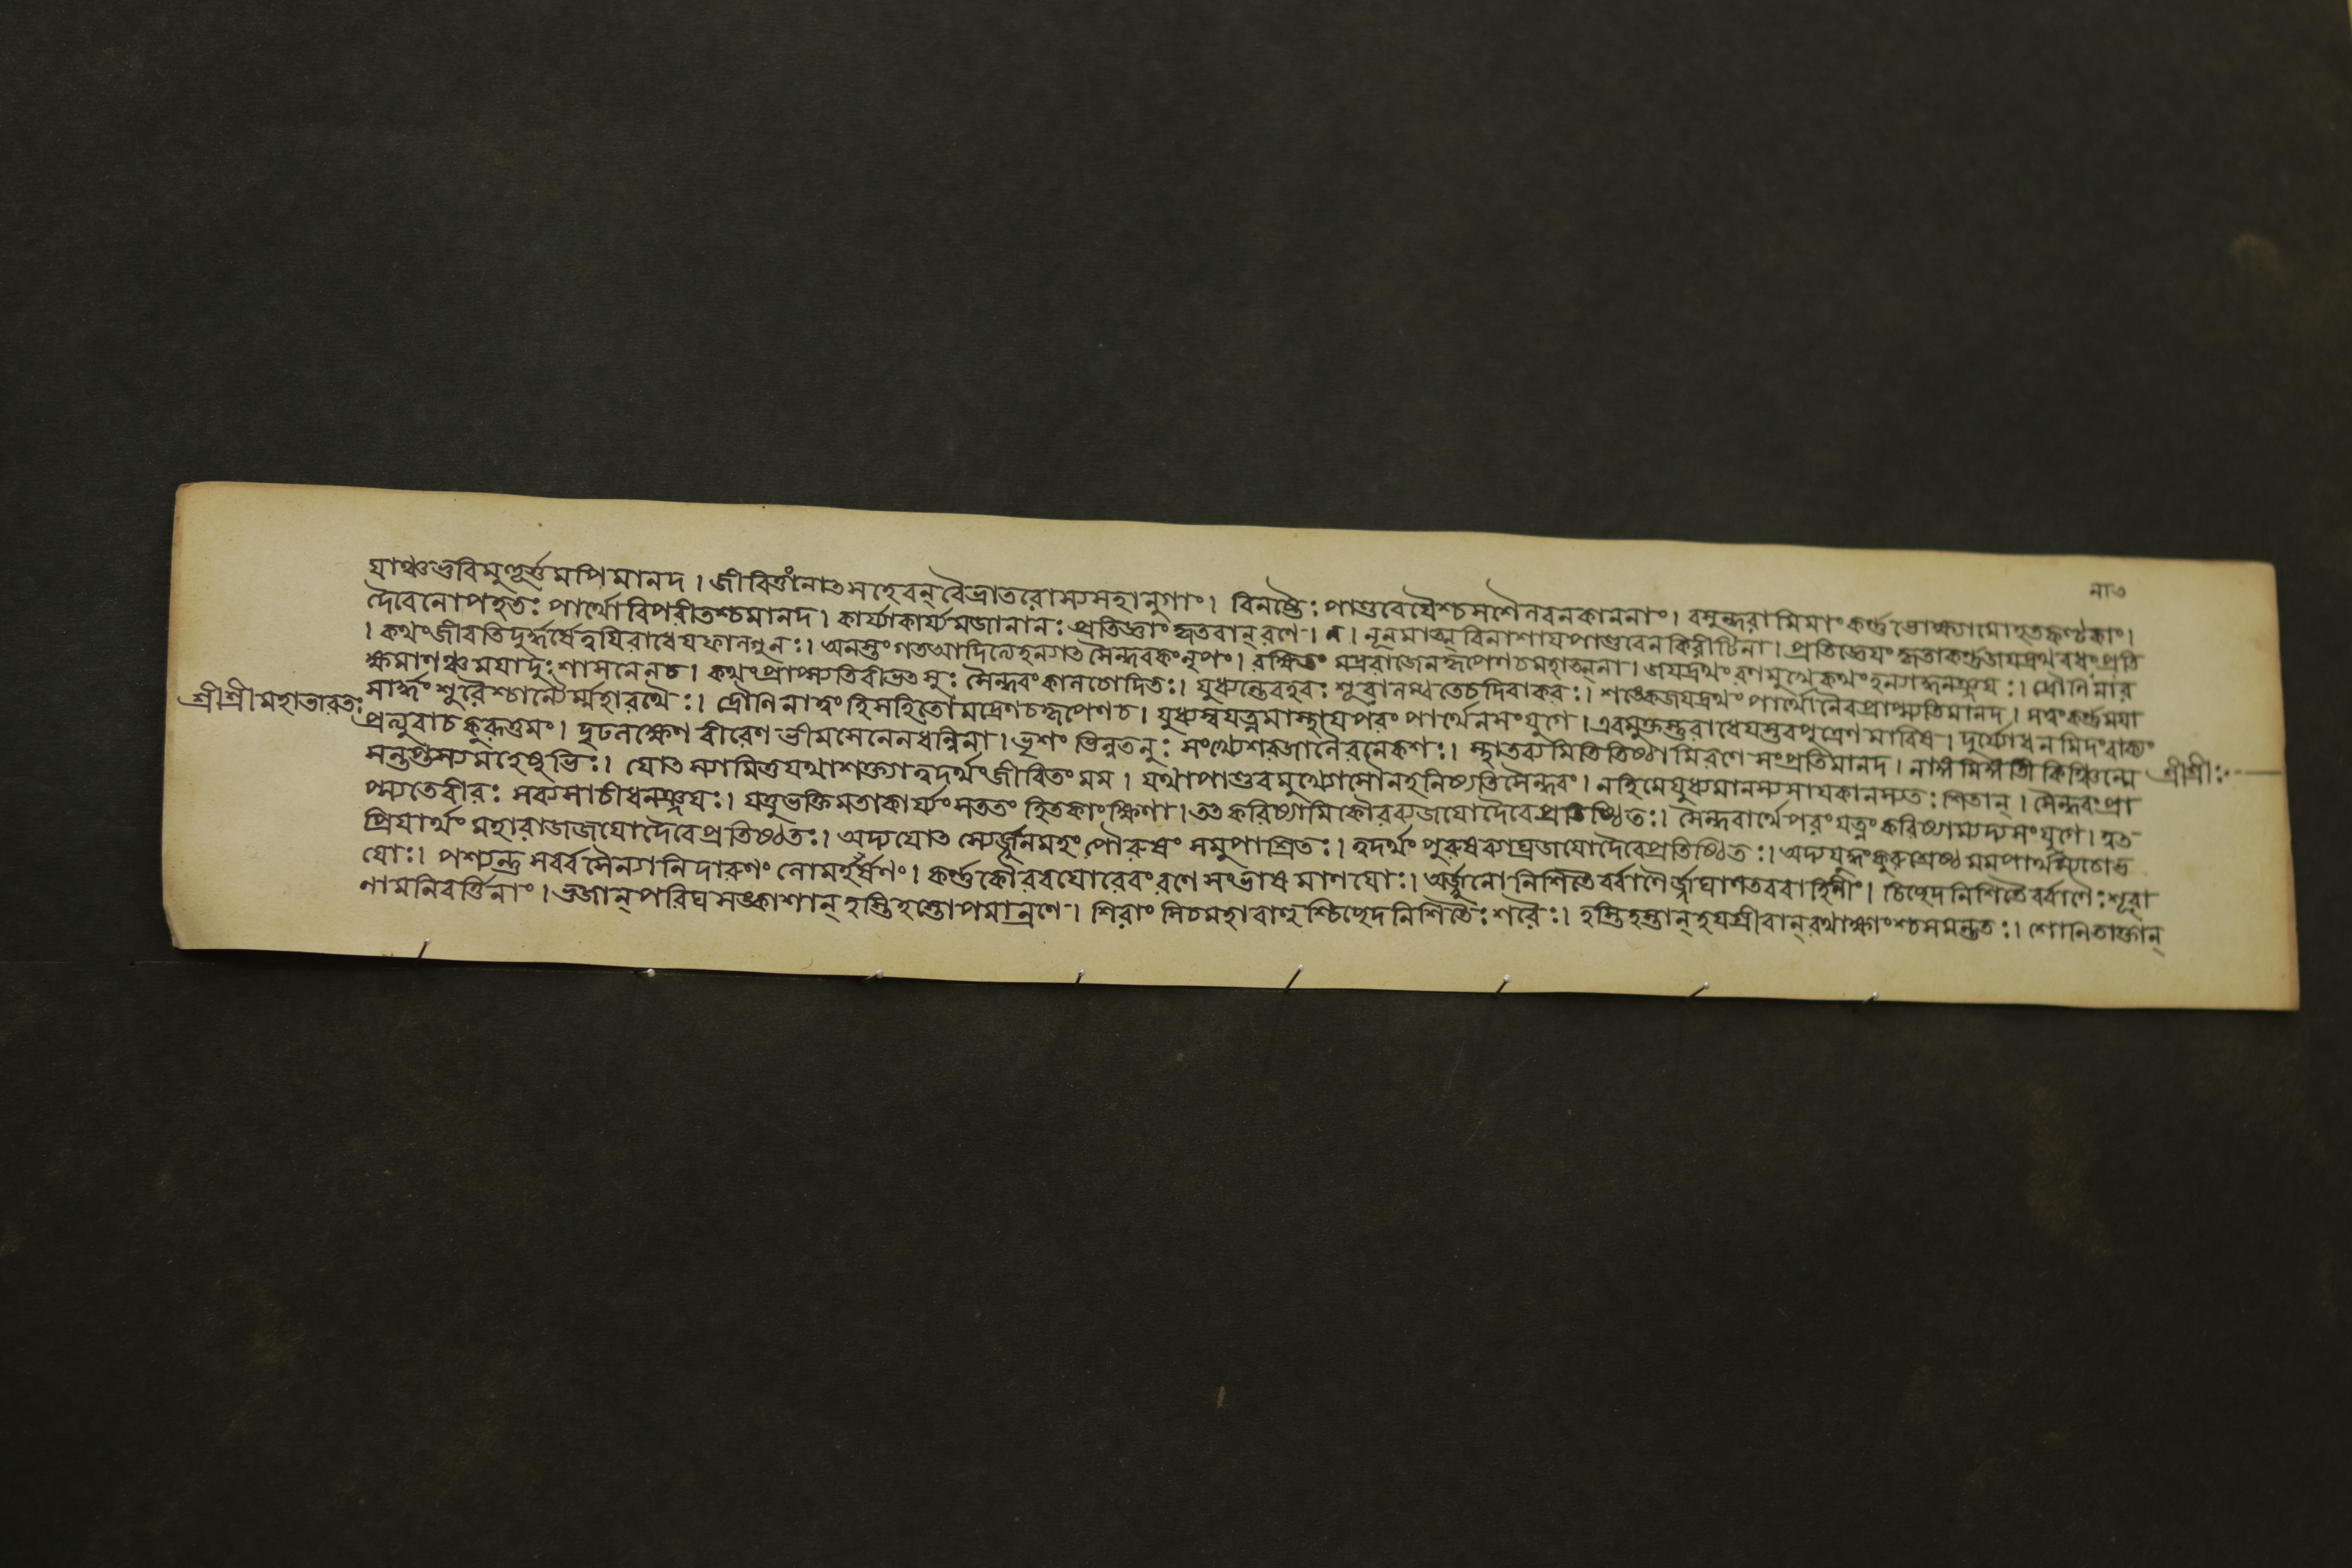 নাত
যাঞ্চভুবিমুহূর্ত্তমপিমানদ। জীবিতুং নোৎসহেবন্ বৈভ্রাতরোস্যসহানুগাঃ। বিনষ্টৈঃ পাণ্ডবেযৈশ্চসশৈলবনকাননাং। বসুন্ধরামিমাং কর্ণ্ণভোক্ষ্যামোহতকণ্টকাং।
দৈবেনোপহতঃ পার্থোবিপরীতশ্চমানদ। কার্য্যাকার্য্যমজানানঃ প্রতিজ্ঞাং কৃতবান্ রণে। নূনমাত্মন্ বিনাশাযপাণ্ডবেন কিরীটিনা। প্রতিজ্ঞেযং কৃতাকর্ণ্ণজযদ্রথবধং প্রতি
। কথং জীবতিদুর্দ্ধর্ষেত্বযিরাধেযফাল্গুনঃ। অনস্তং গতআদিত্যেহন্যাৎ সৈন্ধবকংনৃপং। রক্ষিতং মদ্ররাজেনকৃপেণচমহাত্মনা। জযদ্রথং রণমুখেকথং হন্যাদ্ধনঞ্জযঃ। দ্রৌণিনার
ক্ষমাণঞ্চমযাদুঃশাসনেনচ। কথং প্রাপ্স্যতিবীভৎসুঃ সৈন্ধবং কালচোদিতঃ। যুধ্যন্তেবহবঃ শূরালম্বতেচদিবাকরঃ। শঙ্কেজযদ্রথং পার্থোনৈবপ্রাপ্স্যতিমানদ। সত্বংকর্ণ্ণমযা
শ্রীশ্রীমহাভারতঃ
সার্দ্ধং শূরৈশ্চান্যৈর্ম্মহারথৈঃ। দ্রৌণিনাত্বং হিসহিতোমদ্রেণচকৃপেণচ। যুধ্যস্বযত্নমাস্থাযপরং পার্থেনসংযুগে। এবমুক্তস্তুরাধেযস্তবপুত্রেণমারিষ। দুর্য্যোধনমিদংবাক্যং
প্রত্যুবাচকুরূত্তমং। দৃঢলক্ষ্যেণ বীরেণ ভীমসেনেনধন্বিনা। ভৃশং ভিন্নতনুঃ সংখ্যেশরজালৈরনেকশঃ। স্থাতব্যমিতিতিষ্ঠামিরণে সংপ্রতিমানদ। নাঙ্গমিঙ্গতি কিঞ্চিন্মে
শ্রীশ্রীঃ
সন্তপ্তস্যমহেষুভিঃ। যোৎস্যামিতুযথাশক্ত্যাত্বদর্থং জীবিতং মম। যথাপাণ্ডবমুখ্যোসৌনহনিষ্যতিসৈন্ধবং। নহিমেযুধ্যমানস্যসাযকানস্যতঃ শিতান্। সৈন্ধবংপ্রা
প্স্যতেবীরঃ সব্যসাচীধনঞ্জযঃ। যত্তুভক্তিমতাকার্য্যং সততং হিতকাংক্ষিণা। তৎ করিষ্যামিকৌরব্যজযোদৈবেপ্রতিষ্ঠিতঃ। সৈন্ধবার্থেপরং যত্নং করিষ্যাম্যদ্যসংযুগে। ত্বৎ
প্রিযার্থং মহারাজজযোদৈবেপ্রতিষ্ঠিতঃ। অদ্যযোৎস্যের্জ্জুনমহং পৌরুষং সমুপাশ্রিতঃ। ত্বদর্থং পুরুষব্যাঘ্রজযোদৈবেপ্রতিষ্ঠিতঃ। অদ্যযুদ্ধং কুরুশ্রেষ্ঠ মমপার্থস্যচোভ
যোঃ। পশ্যন্তু সর্ব্বসৈন্যানিদারুণং লোমহর্ষণং। কর্ণ্ণকৌরবযোরেবং রণে সংভাষমাণযোঃ। অর্জ্জুনোনিশিতৈর্ব্বাণৈর্জ্জঘানতববাহিনীং। চিচ্ছেদনিশিতৈর্ব্বাণৈঃ শূরা
ণামনিবর্ত্তিনাং। ভুজান্পরিঘসঙ্কাশান্ হস্তিহস্তোপমান্রণে। শিরাংসিচমহাবাহুশ্চিচ্ছেদনিশিতৈঃ শরৈঃ। হস্তিহস্তান্ হযগ্রীবান্ রথাক্ষাংশ্চসমন্ততঃ। শোণিতাক্তান্